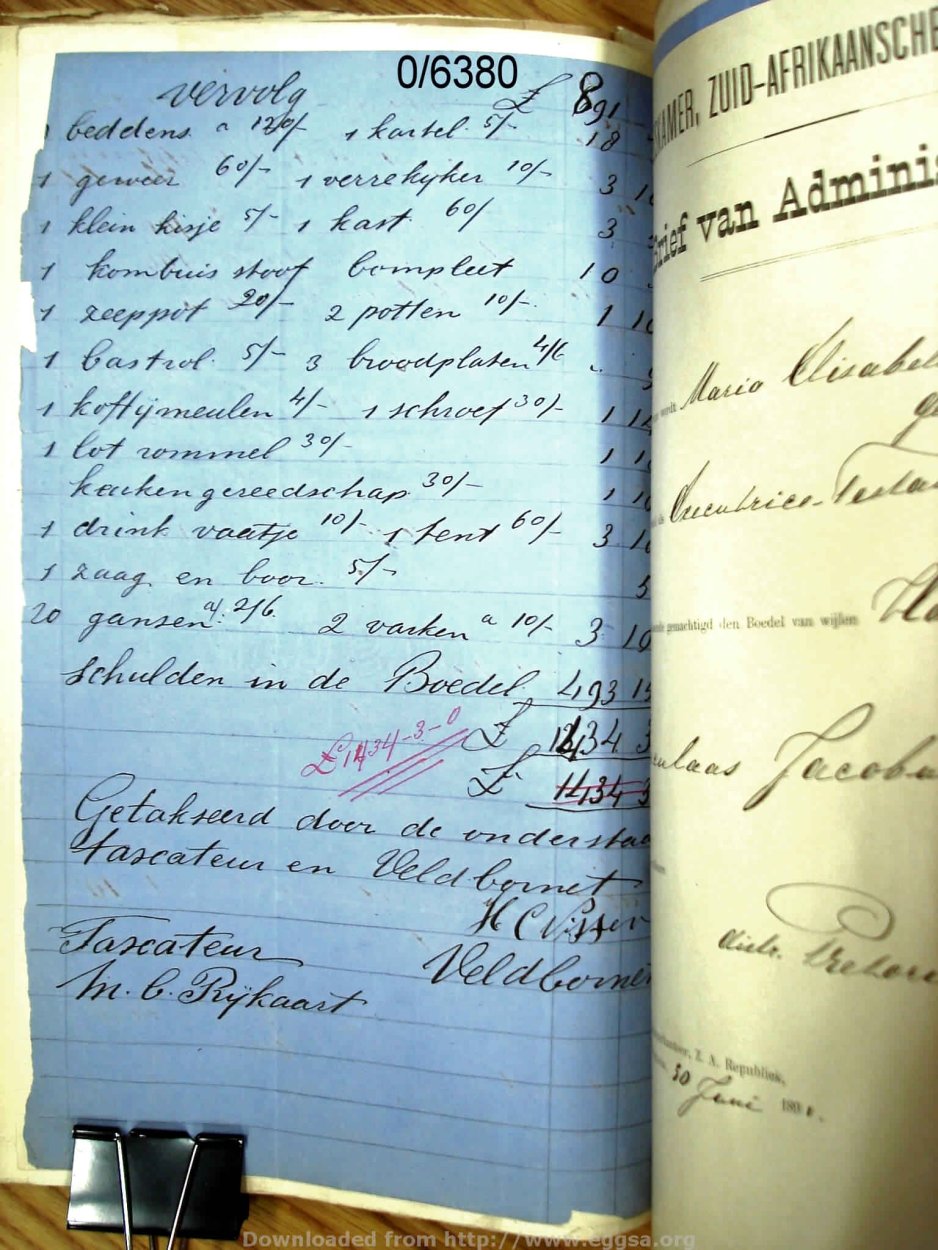 0/6380
vervolg £ 891
beddens a 120/- 1 kartel 5/- 18
1 geweer 60/- 1 verrekyker 10/- 3 10
1 klein kisje 5/- 1 kast 60/ 3
1 kombuis stoof Compleet 10
1 zeeppot 20/- 2 potten 10/- 1 10
1 Castrol 5/- 3 broodplaten 4/6 " 9
1 koffymeulen 4/- 1 schroef 30/- 1 14
1 lot rommel 30/- 1 1
keuken gereedschap 30/- 1 10
1 drink vaatje 10/- 1 tent 60/- 3 10
1 zaag en boor 5/- 5
20 gansen a 2/6 2 varken a 10/- 3 10
Schulden in de Boedel 493 15
£ 1434 3
£1434-3-0
£ 1434 3
Getakseerd door de onderstaa
Taxcateur en Veldcornet
H C Visser
Taxcateur Veldcornet
M. C. Rijkaart
KAMER, ZUID-AFRIKAANSCHE
Brief van Adminis
wordt Maria Elisabe
ge
Executrice-Testa
gemachtigd den Boedel van wijlen
laas Jacobu
distr. Pretori
, Z. A. Republiek,
30 Juni 189
Downloaded from http://www.eggsa.org